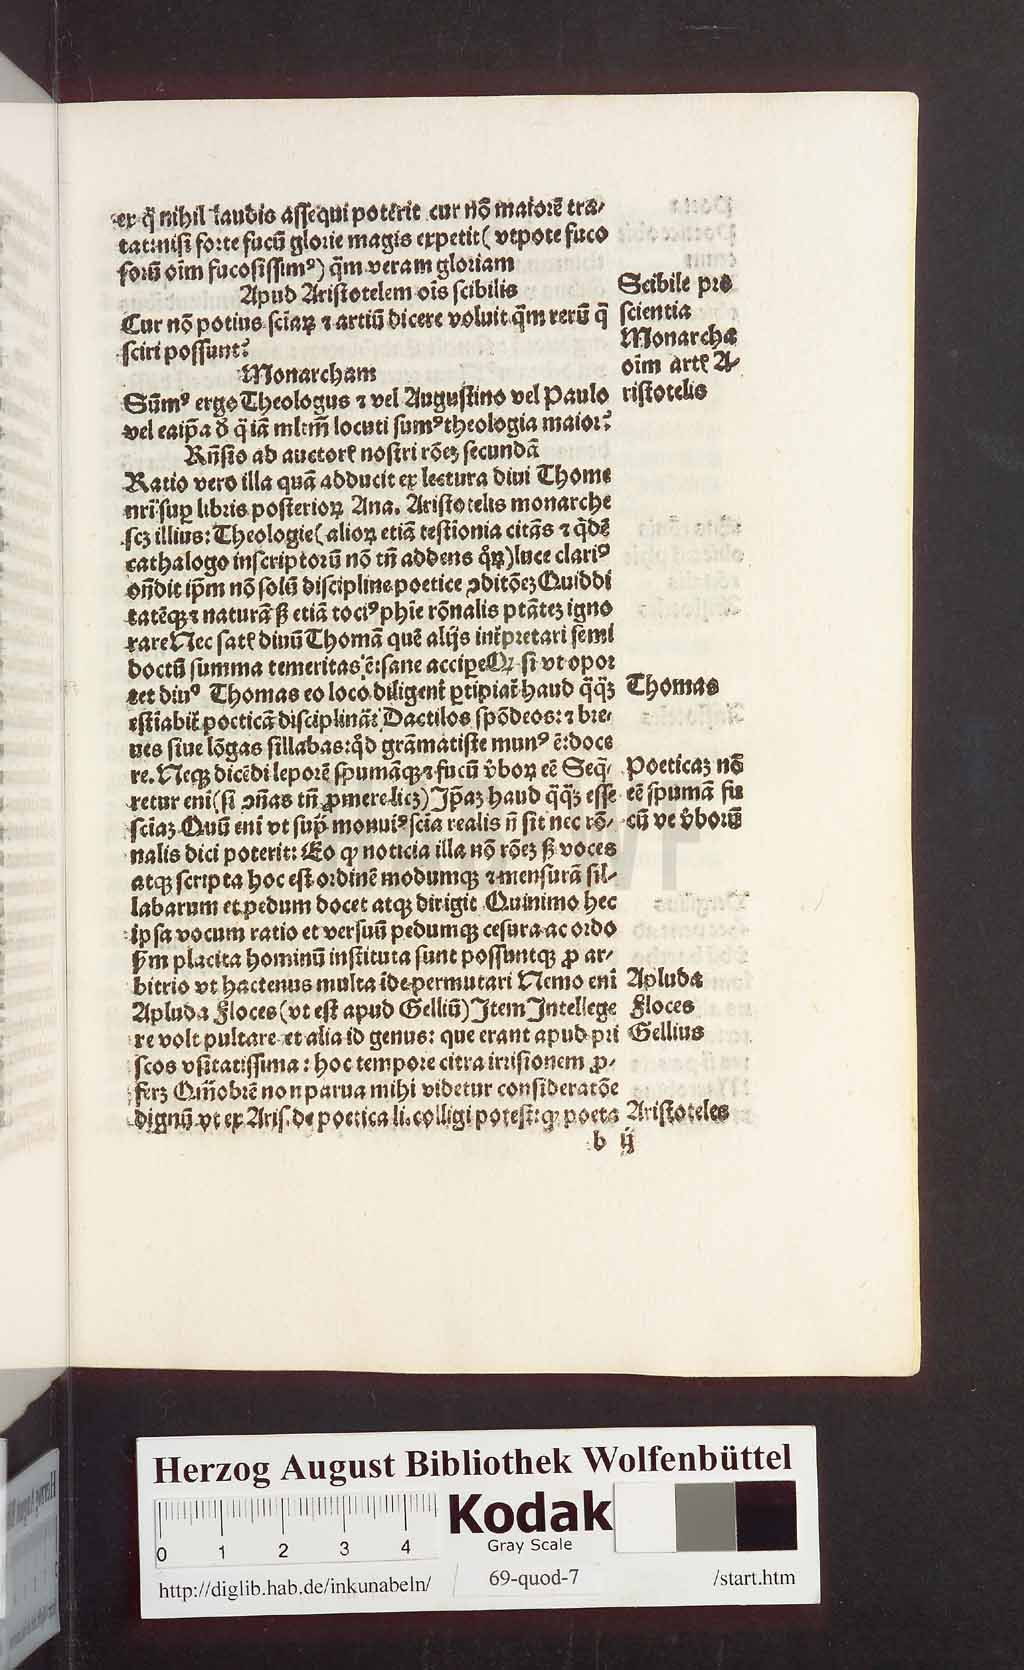 ex q̃ nihil laudis assequi poterit cur nõ maiorẽ tra-
tat: nisi forte fucũ glorie magis expetit (vtpote fuco
sorũ oĩm fucosissimꝰ) q̃m veram gloriam
Apud Aristotelem oĩs scibilis
Cur nõ potius sciaꝝ ⁊ artiũ dicere voluit q̃m rerũ q̃
sciri possunt?
Monarcham
Sũmꝰ ergo Theologus ⁊ vel Augustino vel Paulo
vel eaip̃a ð q̃ iã mltm̃ locuti sumꝰ theologia maior?
Rñsio ab auctorꝭ nostri rõeꝫ secundã
Ratio vero illa quã adducit ex lectura diui Thome
nri sup libris posterioꝝ Ana. Aristotelis monarche
scꝫ illius: Theologie (alioꝝ etiã testionia citãs ⁊ q̃dẽ
cathalogo inscriptorũ nõ tñ addens q̊ꝝ) luce clariꝰ
oñdit ip̃m nõ solũ discipline poetice ꝯditõeꝫ Quiddi
tatẽqꝫ ⁊ naturã sꝫ etiã tociꝰ phie rõnalis ptãteꝫ igno
rare Nec satꝭ diuũ Thomã quẽ alijs inťpretari semi
doctũ summa temeritas ẽ: sane accipe Qꝛ si vt opor
tet diuꝰ Thomas eo loco diligenť ꝑtipiať haud q̃q̃ꝫ
estĩabiť poeticã disciplinã: Dactilos spõdeos: ⁊ bre-
ues siue lõgas sillabas: q̊d grãmatiste munꝰ ẽ: doce
re. Neqꝫ dicẽdi leporẽ spumãqꝫ ⁊ fucũ v̓boꝝ eẽ Seq̃-
retur eni (si ꝯñas tñ ꝓmere licꝫ) Jp̃aꝫ haud q̃q̃ꝫ esse
sciaꝫ Quũ eni vt sup̃ monuiꝰ scia realis ñ sit nec rõ-
nalis dici poterit: Eo ꝙ noticia illa nõ rõeꝫ sꝫ voces
atqꝫ scripta hoc est ordinẽ modumqꝫ ⁊ mensurã sil-
labarum et pedum docet atqꝫ dirigit Quinimo hec
ipsa vocum ratio et versuũ pedumqꝫ cesura ac ordo
ẜm placita hominũ instituta sunt possuntqꝫ ꝓ ar-
bitrio vt hactenus multa ĩde permutari Nemo eni
Apluda Floces (vt est apud Gelliũ) Jtem Jntellege
re volt pultare et alia id genus: que erant apud pri
scos vsitatissima: hoc tempore citra irrisionem ꝓ-
ferꝫ Qm̃obrẽ non parua mihi videtur consideratõe
dignũ vt ex Aris. de poetica li. colligi potest: ꝙ poeta
b ij
Scibile pro
scientia
Monarcha
oĩm artꝭ A-
ristotelis
Thomas
Poeticaꝫ nõ
eẽ spumã fu
cũ ve v̓borũ
Apluda
Floces
Gellius
Aristoteles
Herzog August Bibliothek Wolfenbüttel
0 1 2 3 4
Kodak
Gray Scale
http://diglib.hab.de/inkunabeln/ 69-quod-7 /start.htm